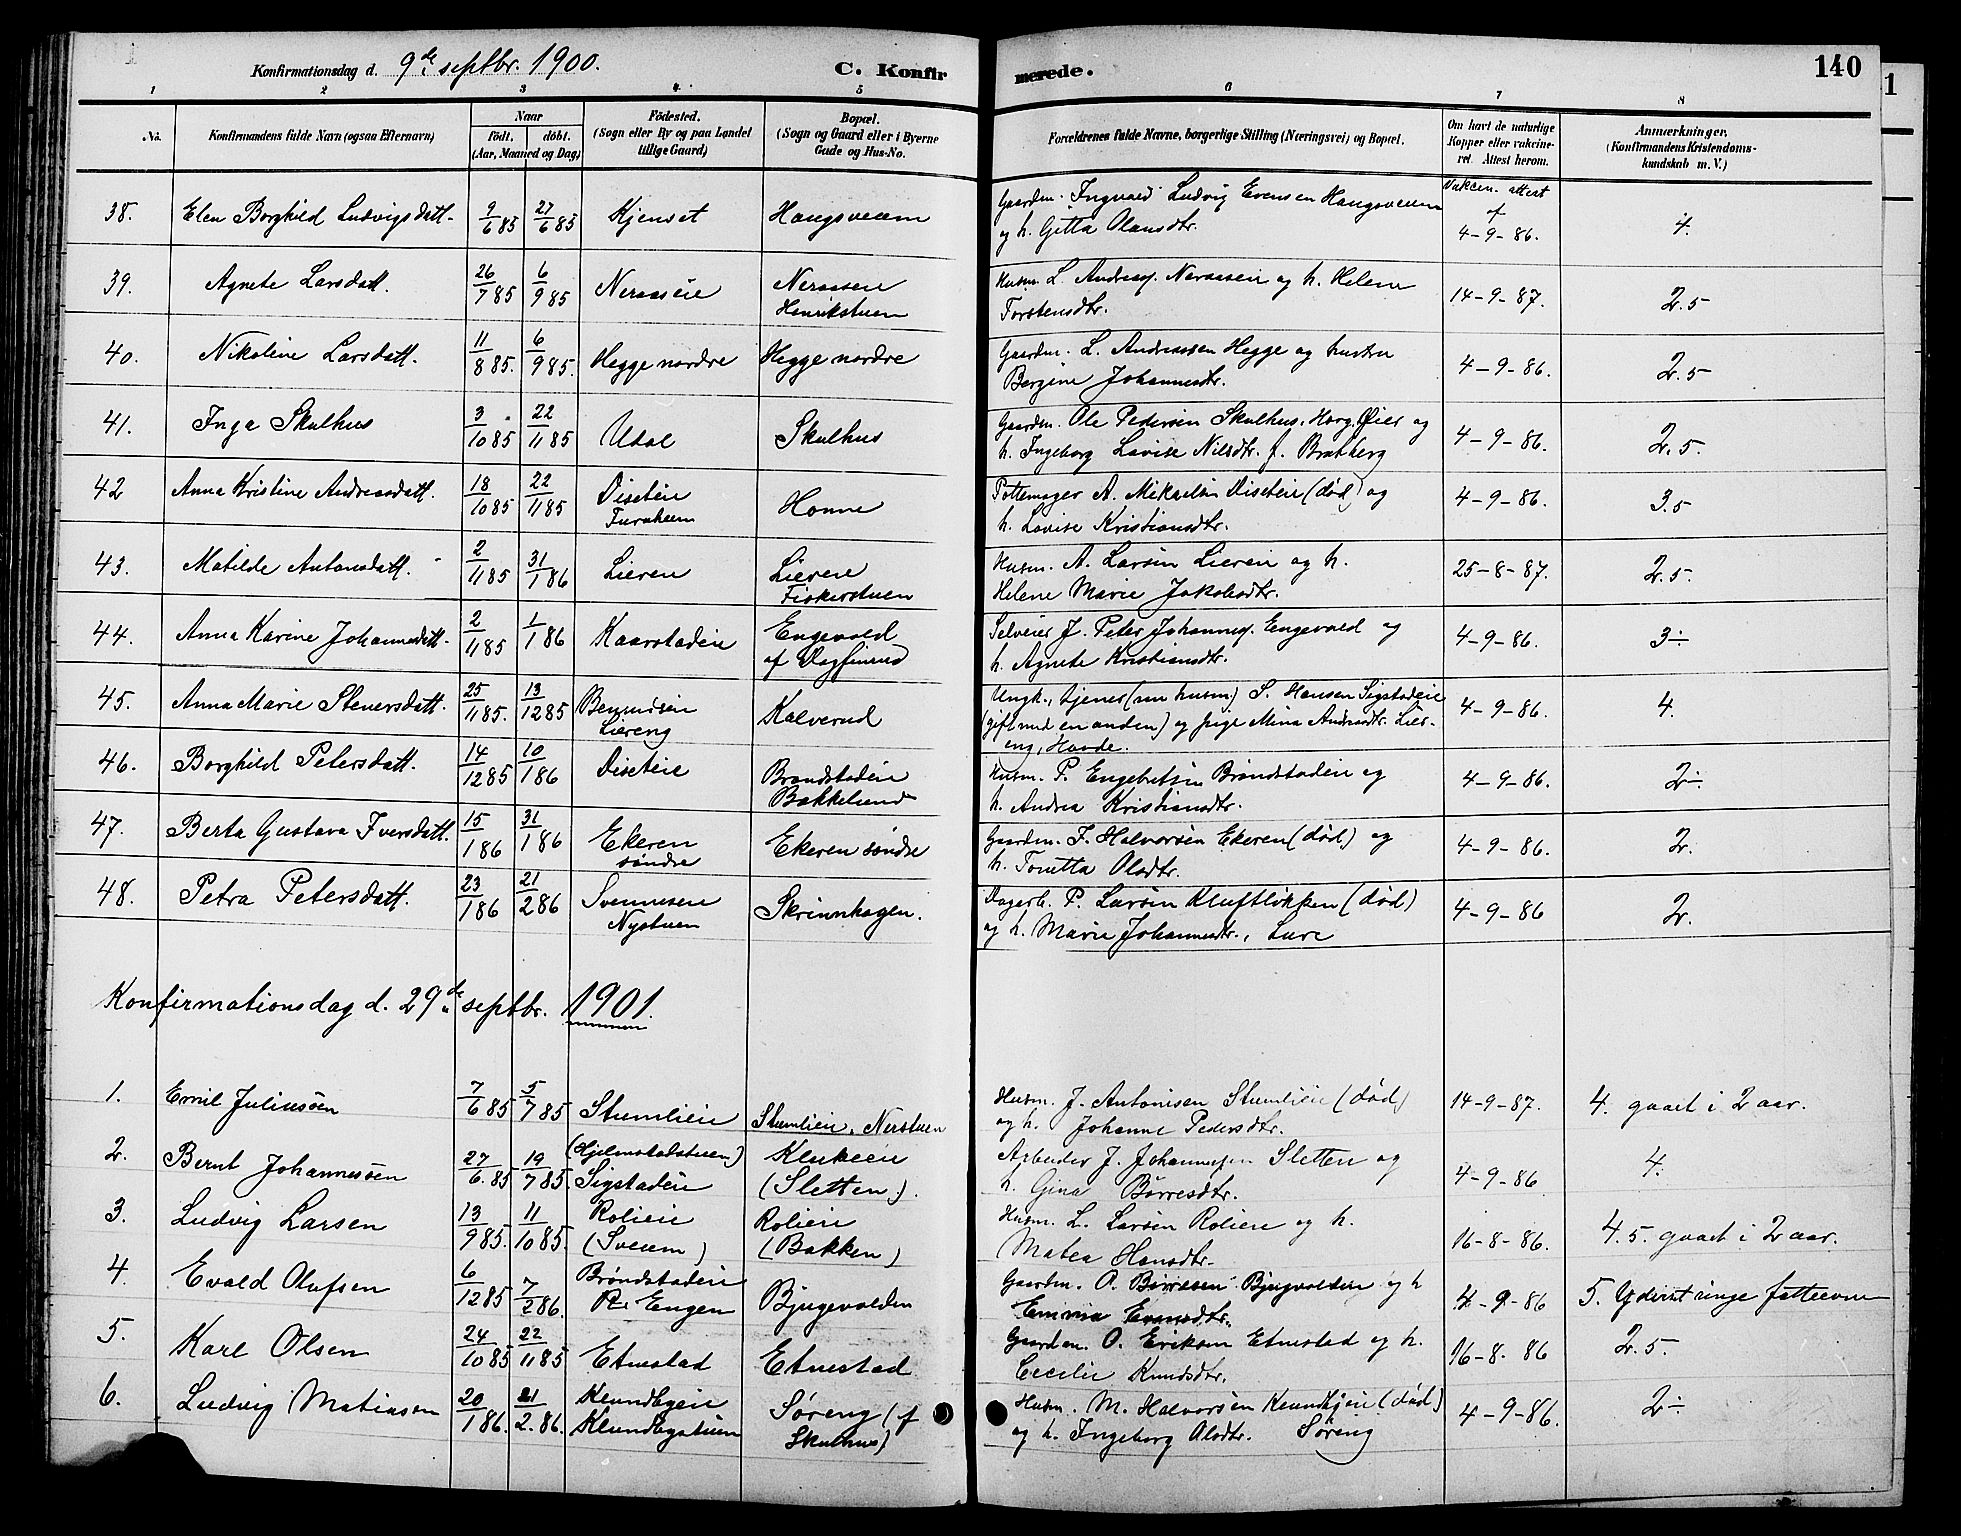 Konfirmationsdag d. 9de septbr. 1900. C. Konfirmerede. 140
1 2 3 4 5 6 7 8
No. Konfirmandens fulde Navn (ogsaa Efternavn) Naar født. døbt. (Aar, Maaned og Dag) Fødested. (Sogn eller By og paa Landet tillige Gaard) Bopæl. (Sogn og Gaard eller i Byerne Gade og Hus-No. Forældrenes fulde Navne, borgerlige Stilling (Næringsvei) og Bopæl. Om havt de naturlige Kopper eller vaccineret. Attest herom. Anmærkninger, (Konfirmandens Kristendomskundskab m. V.)
38. Elen Borghild Ludvigsdatt. 9/6 85 27/6 85 Kjenset Haugsveem Gaardm. Ingvald Ludvig Evensen Haugsveem Vakcin. attest af
og h. Gitta Olausdtr. 4-9-86. 4.
39. Agnete Larsdatt. 26/7 85 6/9 85 Neraaseie Neraasen Husm. L. Andreas. Neraaseie og h. Helene 14-9-87. 2.5
Henrikstuen Torstensdtr.
40. Nikoline Larsdatt. 11/8 85. 6/9 85. Hegge nordre Hegge nordre Gaardm. L. Andreassen Hegge og hustru 4-9-86. 2.5
Bergine Johannesdtr.
41. Inga Skulhus 3/10 85 22/11 85 Udal Skulhus Gaardm. Ole Pedersen Skulhus, Øier og 4-9-86. 2.5.
h. Ingeborg Lovise Nilsdtr. f. Bratberg
42 Anna Kristine Andreasdatt. 18/10 85 22/11 85 Diseteie Honne Pottemager A. Mikaelsen Diseteie (død) og 4-9-86. 3.5
Furuheim h. Lovise Kristiansdtr.
43. Matilde Antonsdatt. 2/11 85 31/1 86 Lieren Lieren Husm. A. Larsen Liereie og h. 25-8-87. 2.5.
Fiskerstuen Helene Marie Jakobsdtr.
44. Anna Karine Johannesdatt. 2/11 85 1/1 86 Kaarstadeie Engevold Selveier J. Peter Johannes. Engevold og 4-9-86. 3÷
af Dagfinrud h. Agnete Kristiansdtr.
45. Anna Marie Stenersdatt. 25/11 85. 13/12 85 Kalverud Ungk., tjener (nu husm.) S. Hansen Sigstadeie 4-9-86. 4.
Liereng (gift med en anden) og pige Mina Andersdtr. Liereng, Hovde.
46. Borghild Petersdatt. 14/12 85 10/1 86 Diseteie Brøndstadeie Husm. P. Engebretsen Brøndstadeie og 4-9-86. 2÷
Bakkelund h. Andrea Kristiansdtr.
47. Berta Gustava Iversdatt. 15/1 86 31/1 86 Ekeren Ekeren søndre Gaardm. I. Halvorsen Ekeren (død) og 4-9-86. 2.
søndre h. Tonetta Olsdtr.
48. Petra Petersdatt. 23/1 86 21/2 86 Svennesen Skrinnhagen. Dagarb. P. Larsen Kluftløkken (død) 4-9-86 2.
Nystuen og h. Marie Johannesdtr.,
Konfirmationsdag d. 29de septbr. 1901.
1. Emil Juliussen 7/6 85 5/7 85 Stumlieie Stumlieie. Nerstuen Husm. J. Antonisen Stumlieie (død) 14-9-87. 4. gaaet i 2 aar.
og h. Johanne Pedersdtr.
2. Bernt Johannessen 27/6 85 19/7 85. (Hjelmstadstuen) Klukeie Arbeider J. Johannesen Sletten og 4-9-86 4.
Sigstadeie (Sletten). h. Gina Børresdtr.
3. Ludvig Larsen 13/9 85. 11/10 85. Rolieie Rolieie Husm. L. Larsen Rolieie og h. 16-8-86. 4.5. gaaet i 2 aar.
(Sveum) (Bakken) Matea Hansdtr.
4. Evald Olufsen 6/12 85 7/2 86. Brøndstadeie Bjugevolden Gaardm. O. Bjugvolden og h 4-9-86 5. Yderst ringe fatteevne
Engen Emma Evensdtr.
5. Karl Olsen 24/10 85 22/11 85 Etnestad Etnestad Gaardm. O. Eriksen Etnestad og h. 16-8-86 2.5.
Cecilie Knudsdtr.
6. Ludvig Matiasen 20/1 86. 21/2. 86. Klundbyeie Søreng (f Husm. M. Halvorsen (død) 4-9-86. 2÷
Klundbystuen Skulhus) og h. Ingeborg Olsdtr. Søreng